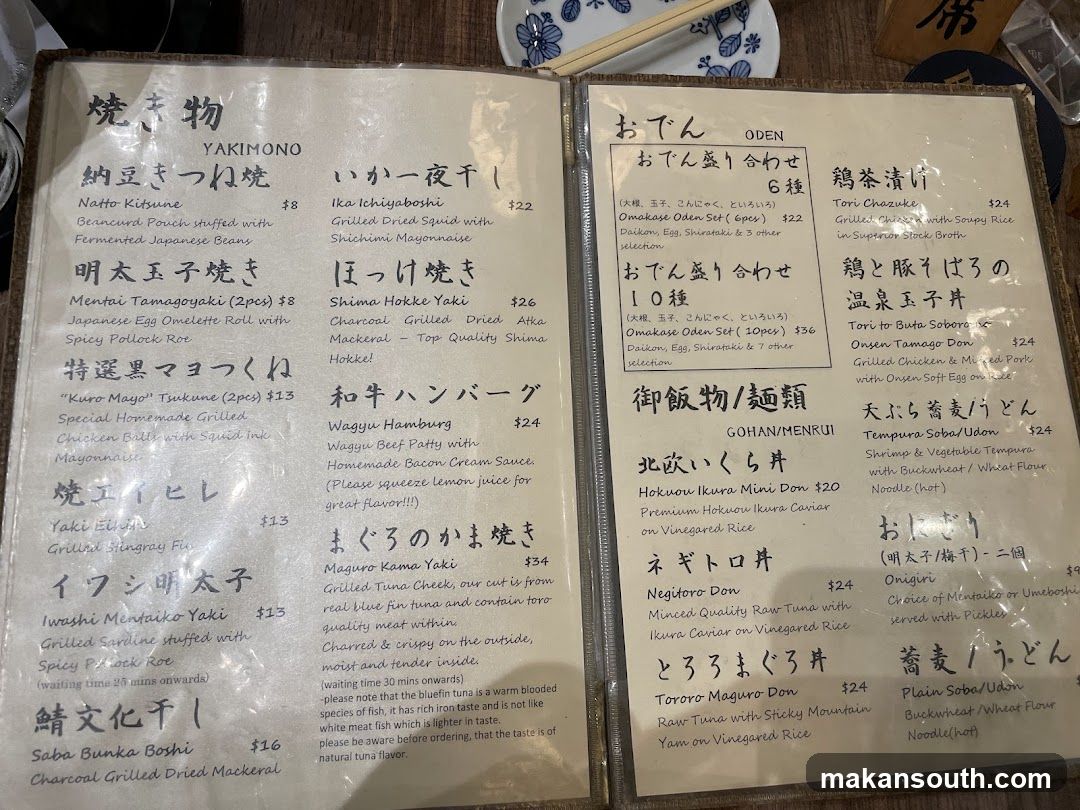 席
焼き物
YAKIMONO
納豆きつね焼
Natto Kitsune $8
Beancurd Pouch stuffed with
Fermented Japanese Beans
明太玉子焼き
Mentai Tamagoyaki (2pcs) $8
Japanese Egg Omelette Roll with
Spicy Pollock Roe
特選黒マヨつくね
"Kuro Mayo" Tsukune (2pcs) $13
Special Homemade Grilled
Chicken Balls with Squid Ink
Mayonnaise
焼エイヒレ
Yaki Eihire $13
Grilled Stingray Fin
イワシ明太子
Iwashi Mentaiko Yaki $13
Grilled Sardine stuffed with
Spicy Pollock Roe
(waiting time 25 mins onwards)
鯖文化干し
Saba Bunka Boshi $16
Charcoal Grilled Dried Mackeral
いか一夜干し
Ika Ichiyaboshi $22
Grilled Dried Squid with
Shichimi Mayonnaise
ほっけ焼き
Shima Hokke Yaki $26
Charcoal Grilled Dried Atka
Mackeral – Top Quality Shima
Hokke!
和牛ハンバーグ
Wagyu Hamburg $24
Wagyu Beef Patty with
Homemade Bacon Cream Sauce.
(Please squeeze lemon juice for
great flavor!!!)
まぐろのかま焼き
Maguro Kama Yaki $34
Grilled Tuna Cheek, our cut is from
real blue fin tuna and contain toro
quality meat within.
Charred & crispy on the outside,
moist and tender inside.
(waiting time 30 mins onwards)
-please note that the bluefin tuna is a warm blooded
species of fish, it has rich iron taste and is not like
white meat fish which is lighter in taste.
please be aware before ordering, that the taste is of
natural tuna flavor.
おでん ODEN
おでん盛り合わせ
6種
(大根、玉子、こんにゃく、といろいろ)
Omakase Oden Set (6pcs) $22
Daikon, Egg, Shirataki & 3 other
selection
おでん盛り合わせ
10種
(大根、玉子、こんにゃく、といろいろ)
Omakase Oden Set (10pcs) $36
Daikon, Egg, Shirataki & 7 other
selection
御飯物/麺類
GOHAN/MENRUI
北欧いくら丼
Hokuou Ikura Mini Don $20
Premium Hokuou Ikura Caviar
on Vinegared Rice
ネギトロ丼
Negitoro Don $24
Minced Quality Raw Tuna with
Ikura Caviar on Vinegared Rice
とろろまぐろ丼
Tororo Maguro Don $24
Raw Tuna with Sticky Mountain
Yam on Vinegared Rice
鶏茶漬け
Tori Chazuke $24
Grilled Chicken with Soupy Rice
in Superior Stock Broth
鶏と豚そぼろの
温泉玉子丼
Tori to Buta Soboro
Onsen Tamago Don $24
Grilled Chicken & Minced Pork
with Onsen Soft Egg on Rice
天ぷら蕎麦/うどん
Tempura Soba/Udon $24
Shrimp & Vegetable Tempura
with Buckwheat / Wheat Flour
Noodle (hot)
おにぎり
(明太子/梅干) - 二個
Onigiri
Choice of Mentaiko or Umeboshi
served with Pickles
蕎麦/うどん
Plain Soba/Udon
Buckwheat /Wheat Flour
Noodle(hot)
makansouth.com